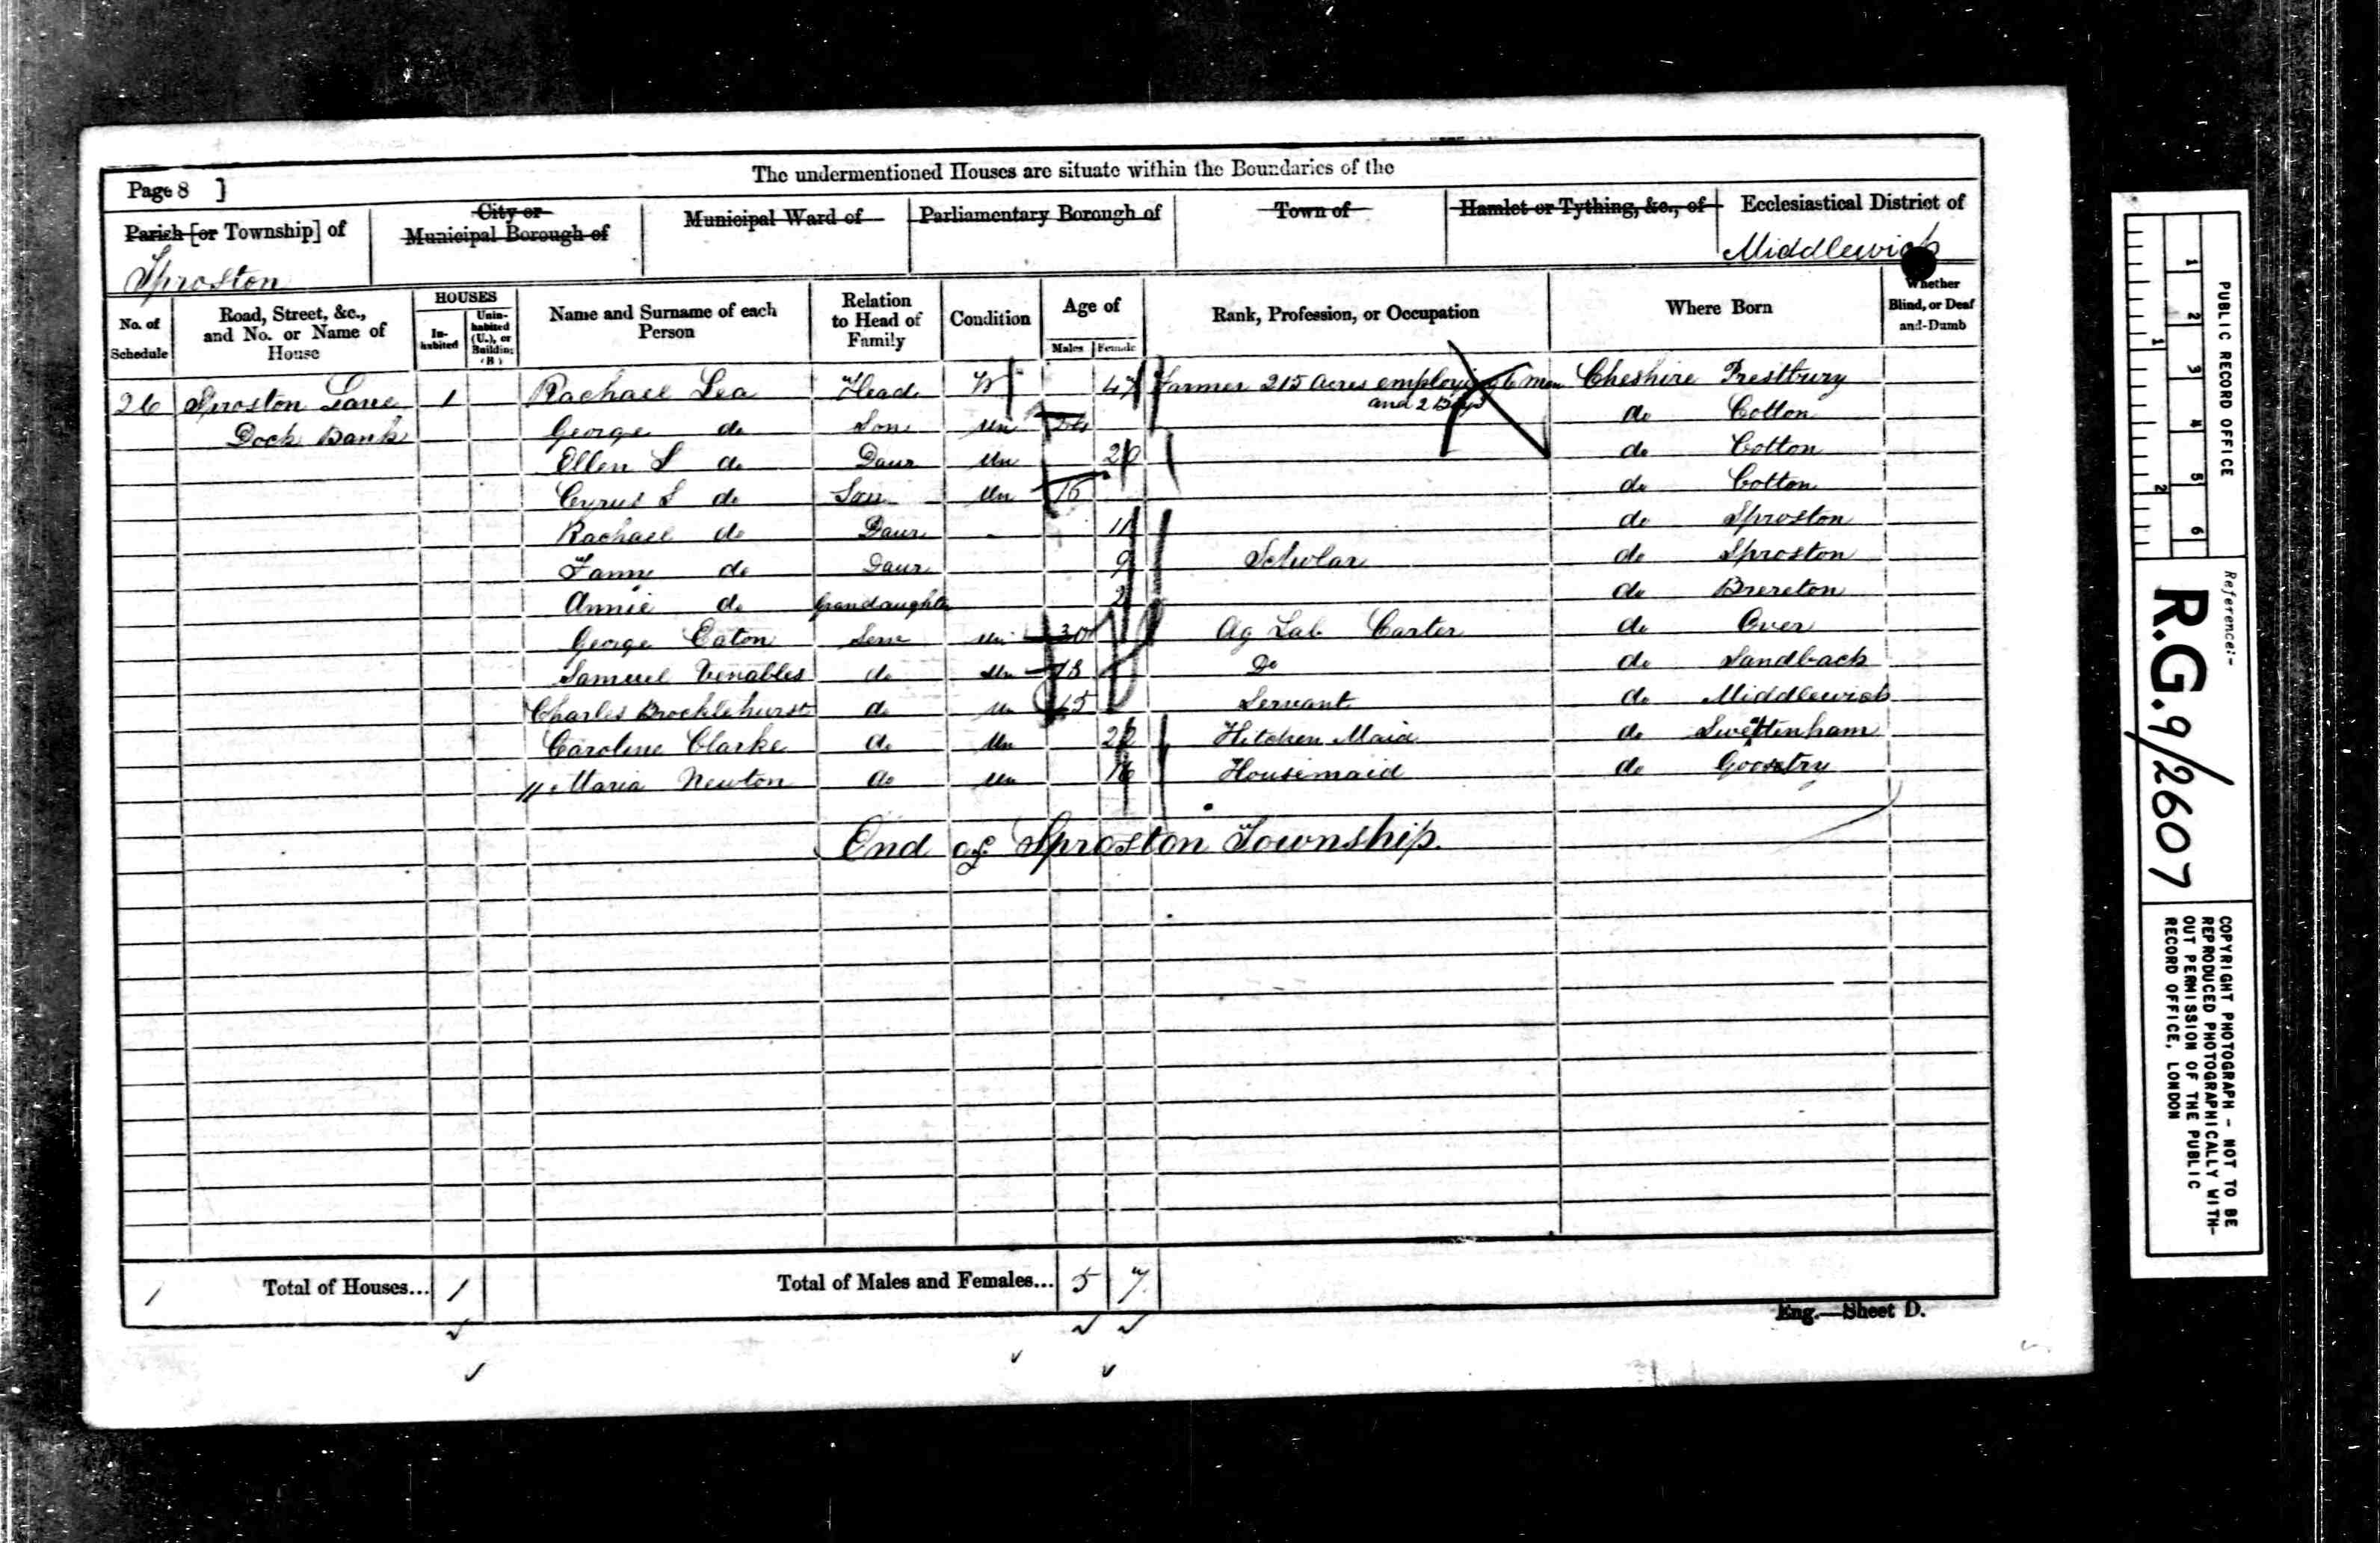 The undermentioned Houses are situate within the Boundaries of the
Page 8 ]
Parish [or Township] of
Sproston
City or
Municipal Borough of
Municipal Ward of
Parliamentary Borough of
Town of
Hamlet or Tything, &c., of
Ecclesiastical District of
Middlewich
No. of Schedule
Road, Street, &c., and No. or Name of House
HOUSES
In-habited
Unin-habited (U.), or Building (B)
Name and Surname of each Person
Relation to Head of Family
Condition
Age of
Males Female
Rank, Profession, or Occupation
Where Born
Whether Blind, or Deaf-and-Dumb
26 Sproston Lane 1 Rachael Lea Head W 47 Farmer 215 Acres employing 6 men Cheshire Prestbury
and 2 Boys
Dock Bank George do Son Un 24 do Cotton
Ellen S do Daur Un 20 do Cotton
Cyrus S do Son Un 16 do Cotton
Rachael do Daur - 11 do Sproston
Fanny do Daur 9 Scholar do Sproston
Annie do Grandaughter 2 do Brereton
George Eaton Serv Un 30 Ag Lab Carter do Over
Samuel Venables do Un 18 Do do Sandbach
Charles Brocklehurst do Un 15 Servant do Middlewich
Caroline Clarke do Un 22 Kitchen Maid do Swettenham
Maria Newton do Un 16 Housemaid do Goostry
End of Sproston Township.
1 Total of Houses... 1 Total of Males and Females... 5 7
Eng.—Sheet D.
PUBLIC RECORD OFFICE
1 2 3 4 5 6
1 2
Reference:-
R.G. 9/2607
COPYRIGHT PHOTOGRAPH - NOT TO BE
REPRODUCED PHOTOGRAPHICALLY WITH-
OUT PERMISSION OF THE PUBLIC
RECORD OFFICE, LONDON